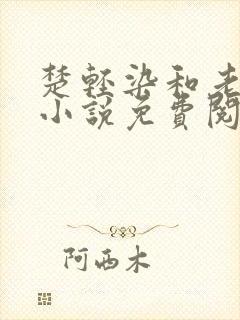 楚轻染和老
小说免费阅
阿西木